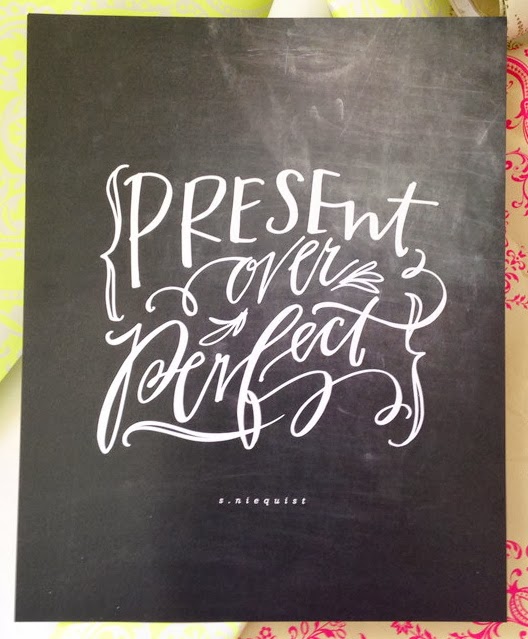 {PRESEnt
over
perfect}
s.niequist